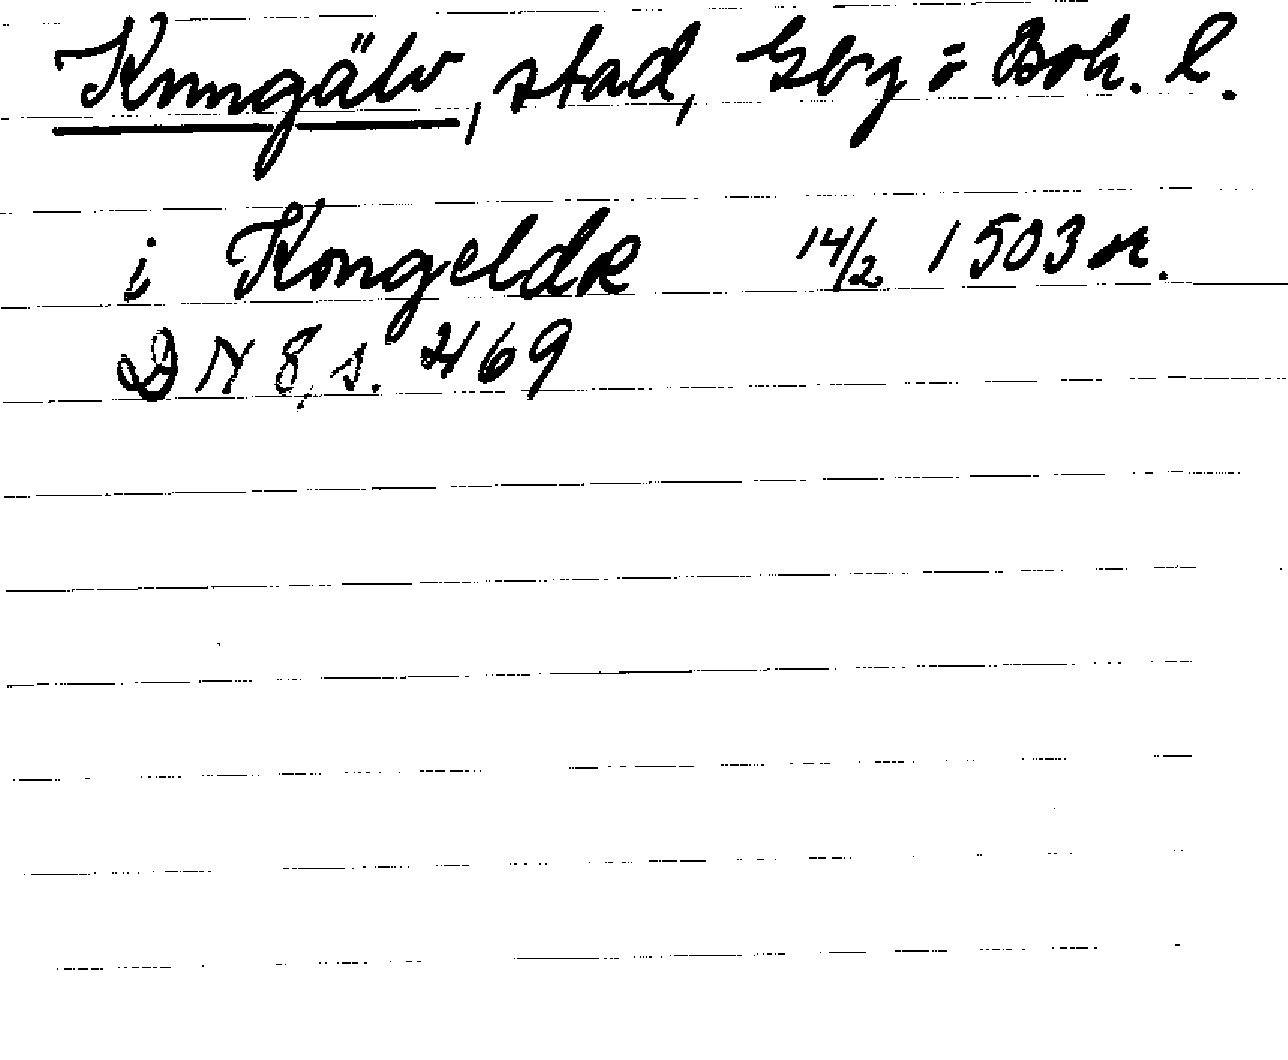 Kungälv, stad, Gby o Boh. l.
i Kongeldk 14/2 1503 or.
DN 8, s. 469